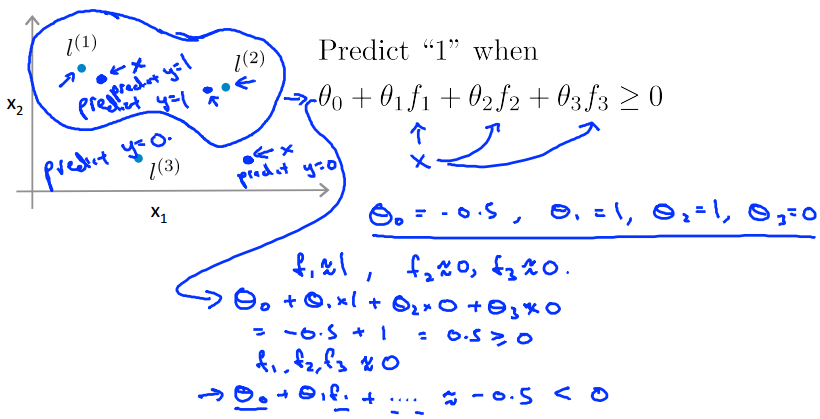 l^{(1)}
x
predict y=1
l^{(2)}
predict y=1
x₂
predict y=0.
l^{(3)}
x
predict y=0
x₁
Predict “1” when
θ₀ + θ₁f₁ + θ₂f₂ + θ₃f₃ ≥ 0
x
θ₀ = -0.5, θ₁ = 1, θ₂ = 1, θ₃ = 0
f₁ ≈ 1, f₂ ≈ 0, f₃ ≈ 0.
→ θ₀ + θ₁×1 + θ₂×0 + θ₃×0
= -0.5 + 1 = 0.5 ≥ 0
f₁, f₂, f₃ ≈ 0
→ θ₀ + θ₁f₁ + .... ≈ -0.5 < 0